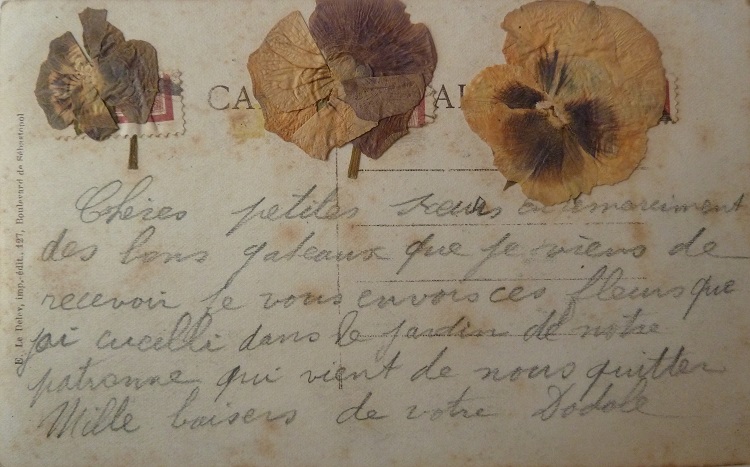 CA
E. Le Deley, imp.-édit., 127, Boulevard de Sébastopol
Chères petites sœurs en remerciment
des bons gateaux que je viens de
recevoir je vous envois ces fleurs que
jai cueilli dans le jardin de notre
patronne qui vient de nous quitter
Mille baisers de votre Dodole